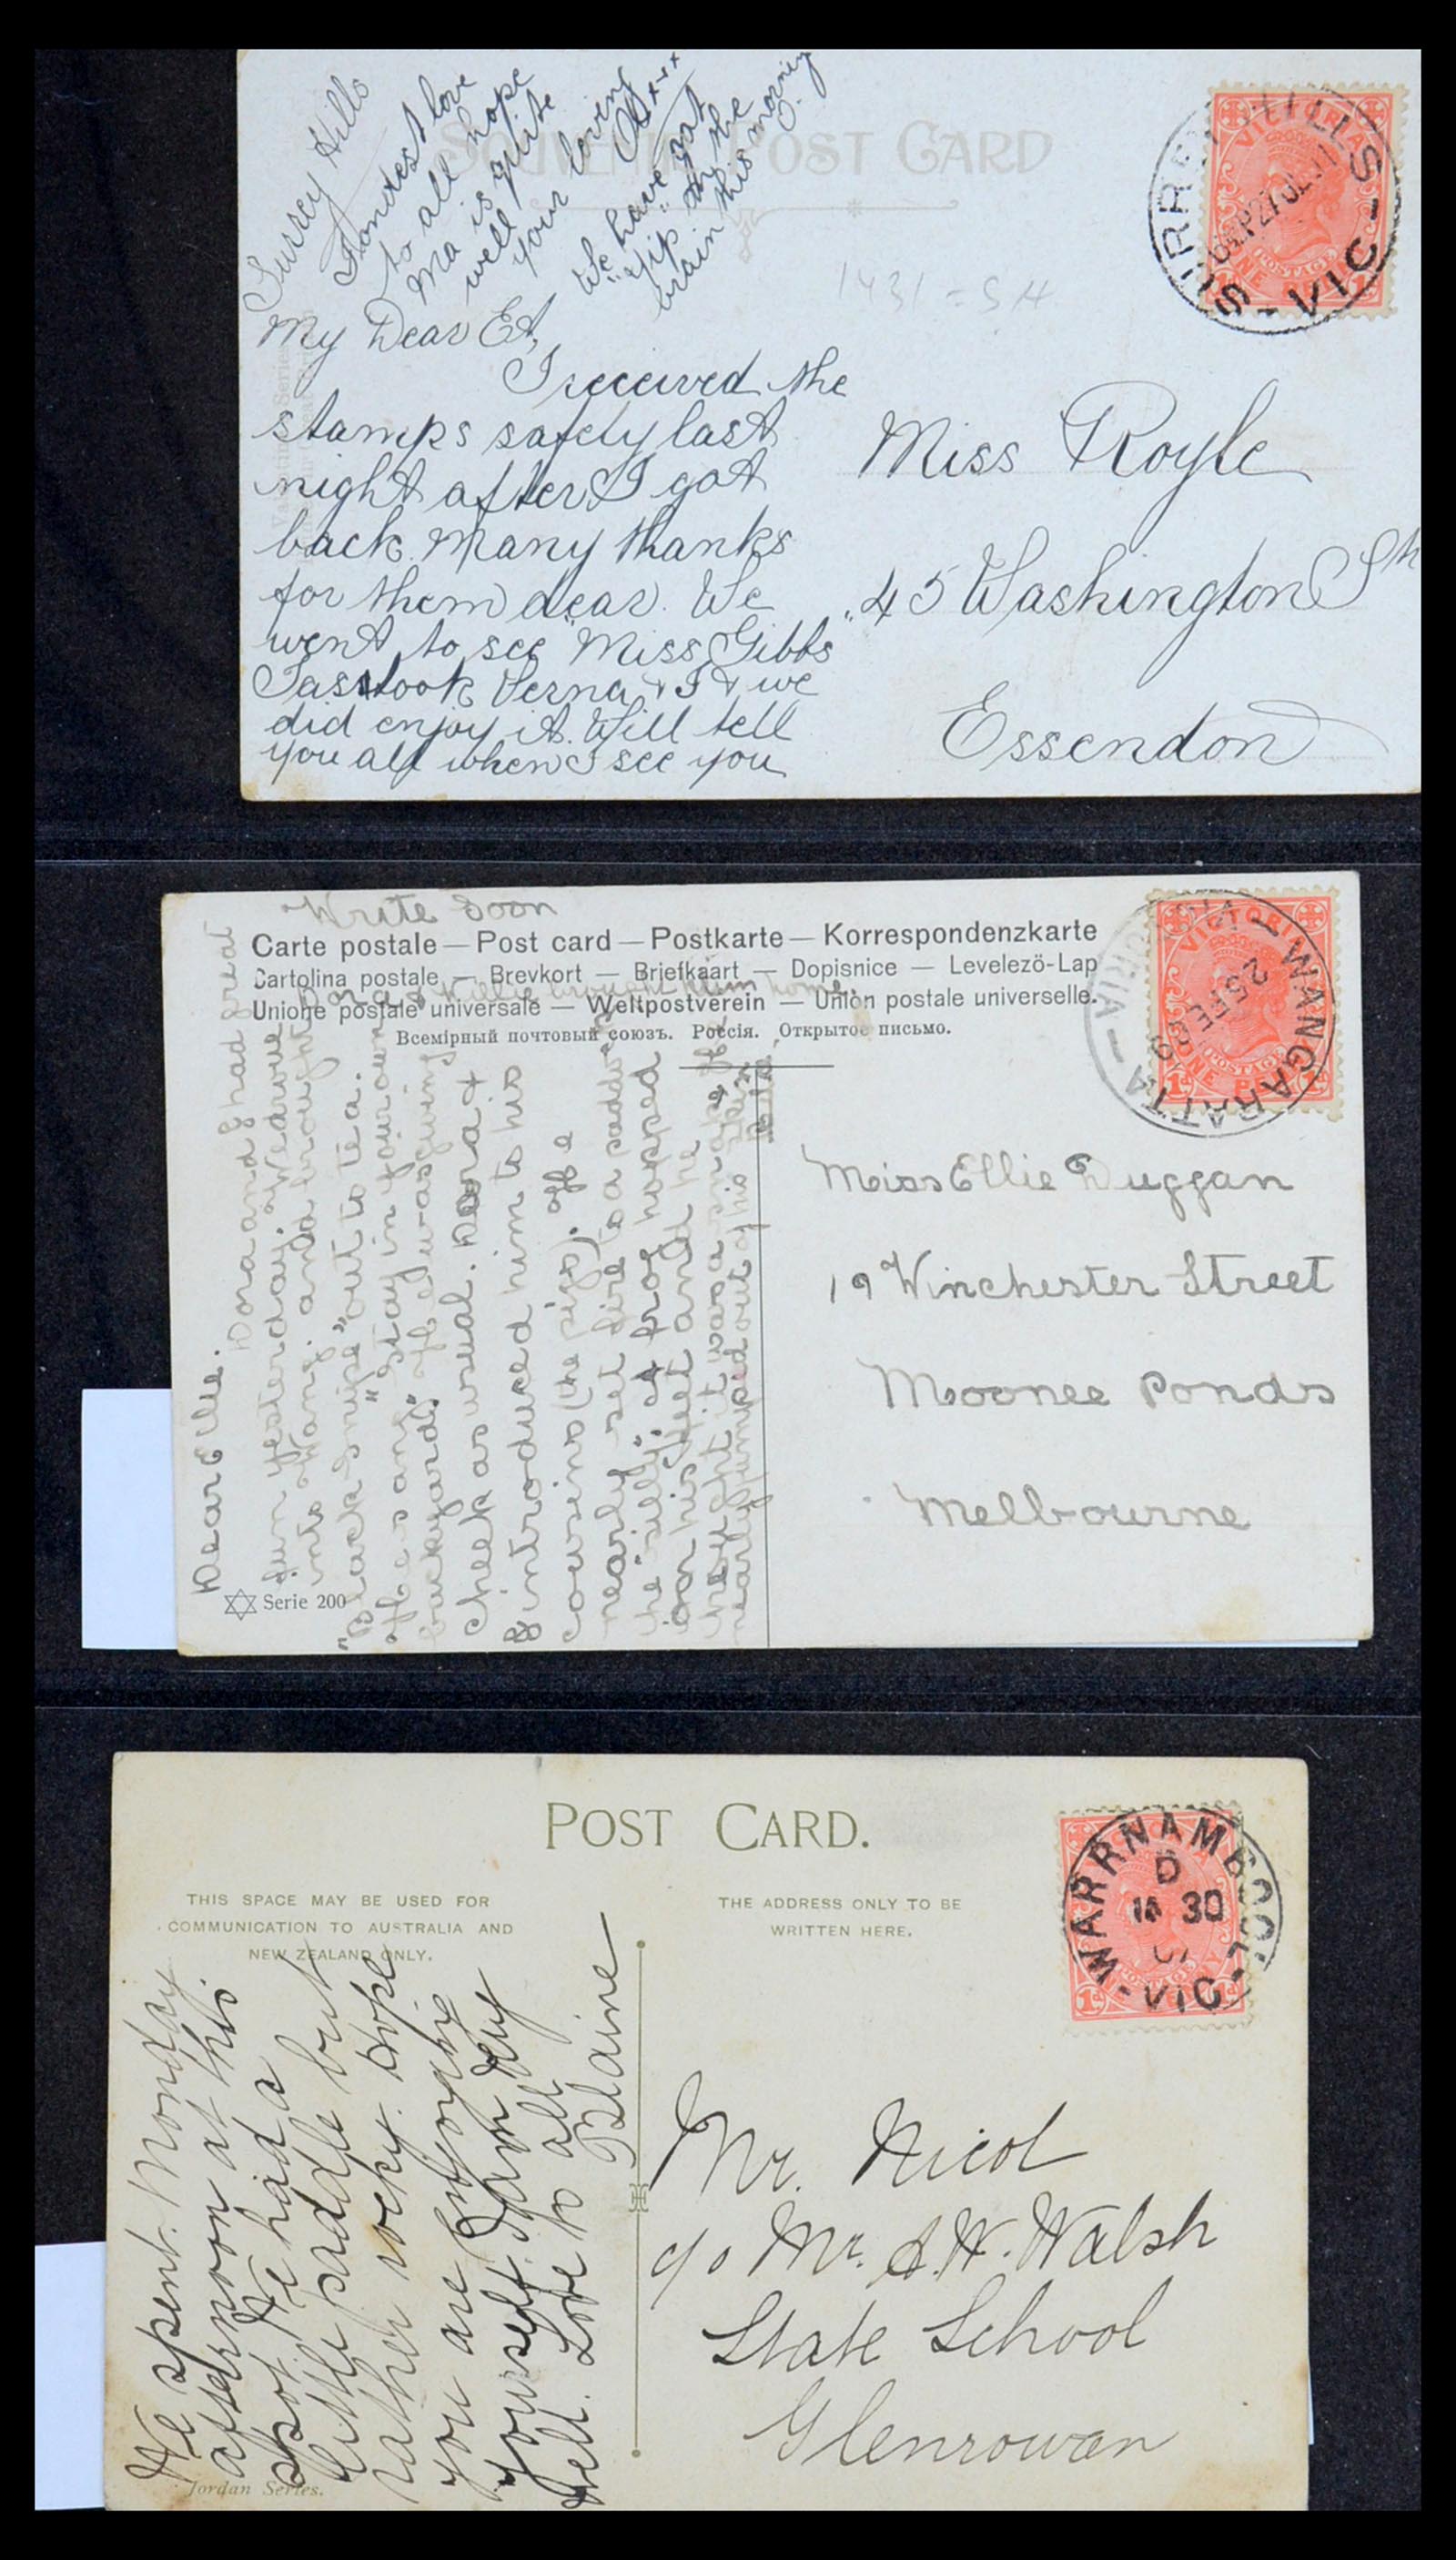 Surrey Hills
Fondest love
to all hope
Ma is quite
well
your loving
xxx
We have got
"Yip" the
brain this morning
SOUVENIR POST CARD
1431 = S H
My Dear Et,
I received the
stamps safely last
night after I got
back. Many thanks
for them dear. We
went to see "Miss Gibbs"
Tas took Verna & I & we
did enjoy it. Will tell
you all when I see you
SURREY HILLS - VIC
VICTORIA
POSTAGE
ONE PENNY
Miss Royle
45 Washington St
Essendon
Write Soon
Carte postale — Post card — Postkarte — Korrespondenzkarte
Cartolina postale — Brevkort — Briefkaart — Dopisnice — Levelezö-Lap
Unione postale universale — Weltpostverein — Union postale universelle.
Всемірный почтовый союзъ. Россія. Открытое письмо.
Dear Ellie.
Dona and I had great
fun yesterday. We drove
into Wang. and brought
"Black Snipe" out to tea.
He sang "Stay in your own
backyard." He was giving
cheek as usual. Dona &
I introduced him to his
cousins (the pigs). He
nearly set fire to a paddock
the silly. A frog hopped
on his feet and he
thought it was a snake he
nearly jumped out of his skin
Dona & Nellie brought him home.
Serie 200
WANGARATTA - VICTORIA
25 FE
VICTORIA
POSTAGE
ONE PENNY
Miss Ellie Duggan
19 Winchester Street
Moonee Ponds
Melbourne
POST CARD.
THIS SPACE MAY BE USED FOR
COMMUNICATION TO AUSTRALIA AND
NEW ZEALAND ONLY.
THE ADDRESS ONLY TO BE
WRITTEN HERE.
WARRNAMBOOL
D
30
VIC
POSTAGE
We spent Monday
afternoon at this
spot. We had a
little paddle but
rather rocky. Hope
you are enjoying
yourself. I am very
well. Love to all
Blaine
Jordan Series.
Mr. Nicol
c/o Mr. A. W. Walsh
State School
Glenrowan